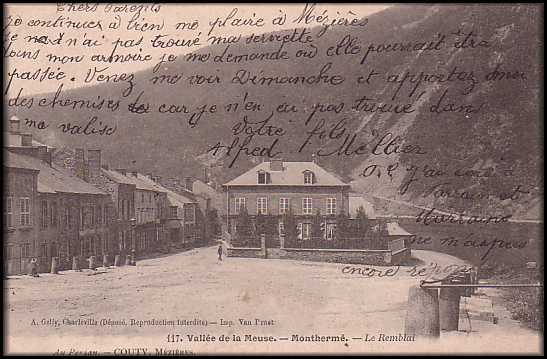 Chers Parents
je continues à bien me plaire à Mézières
je n'ai pas trouvé ma serviette
dans mon armoire je me demande où elle pourrait être
passée. Venez me voir Dimanche et apportez moi
des chemises car je n'en ai pas trouvé dans
ma valise
Votre fils
Alfred Mellier
P.S. j'ai écrit à
et
ne m'a pas
encore répon
A. Gelly, Charleville (Déposé. Reproduction interdite) — Imp. Van Prnet
117. Vallée de la Meuse. — Monthermé. — Le Remblai
Au Persan. — COUTY, MÉZIÈRES.